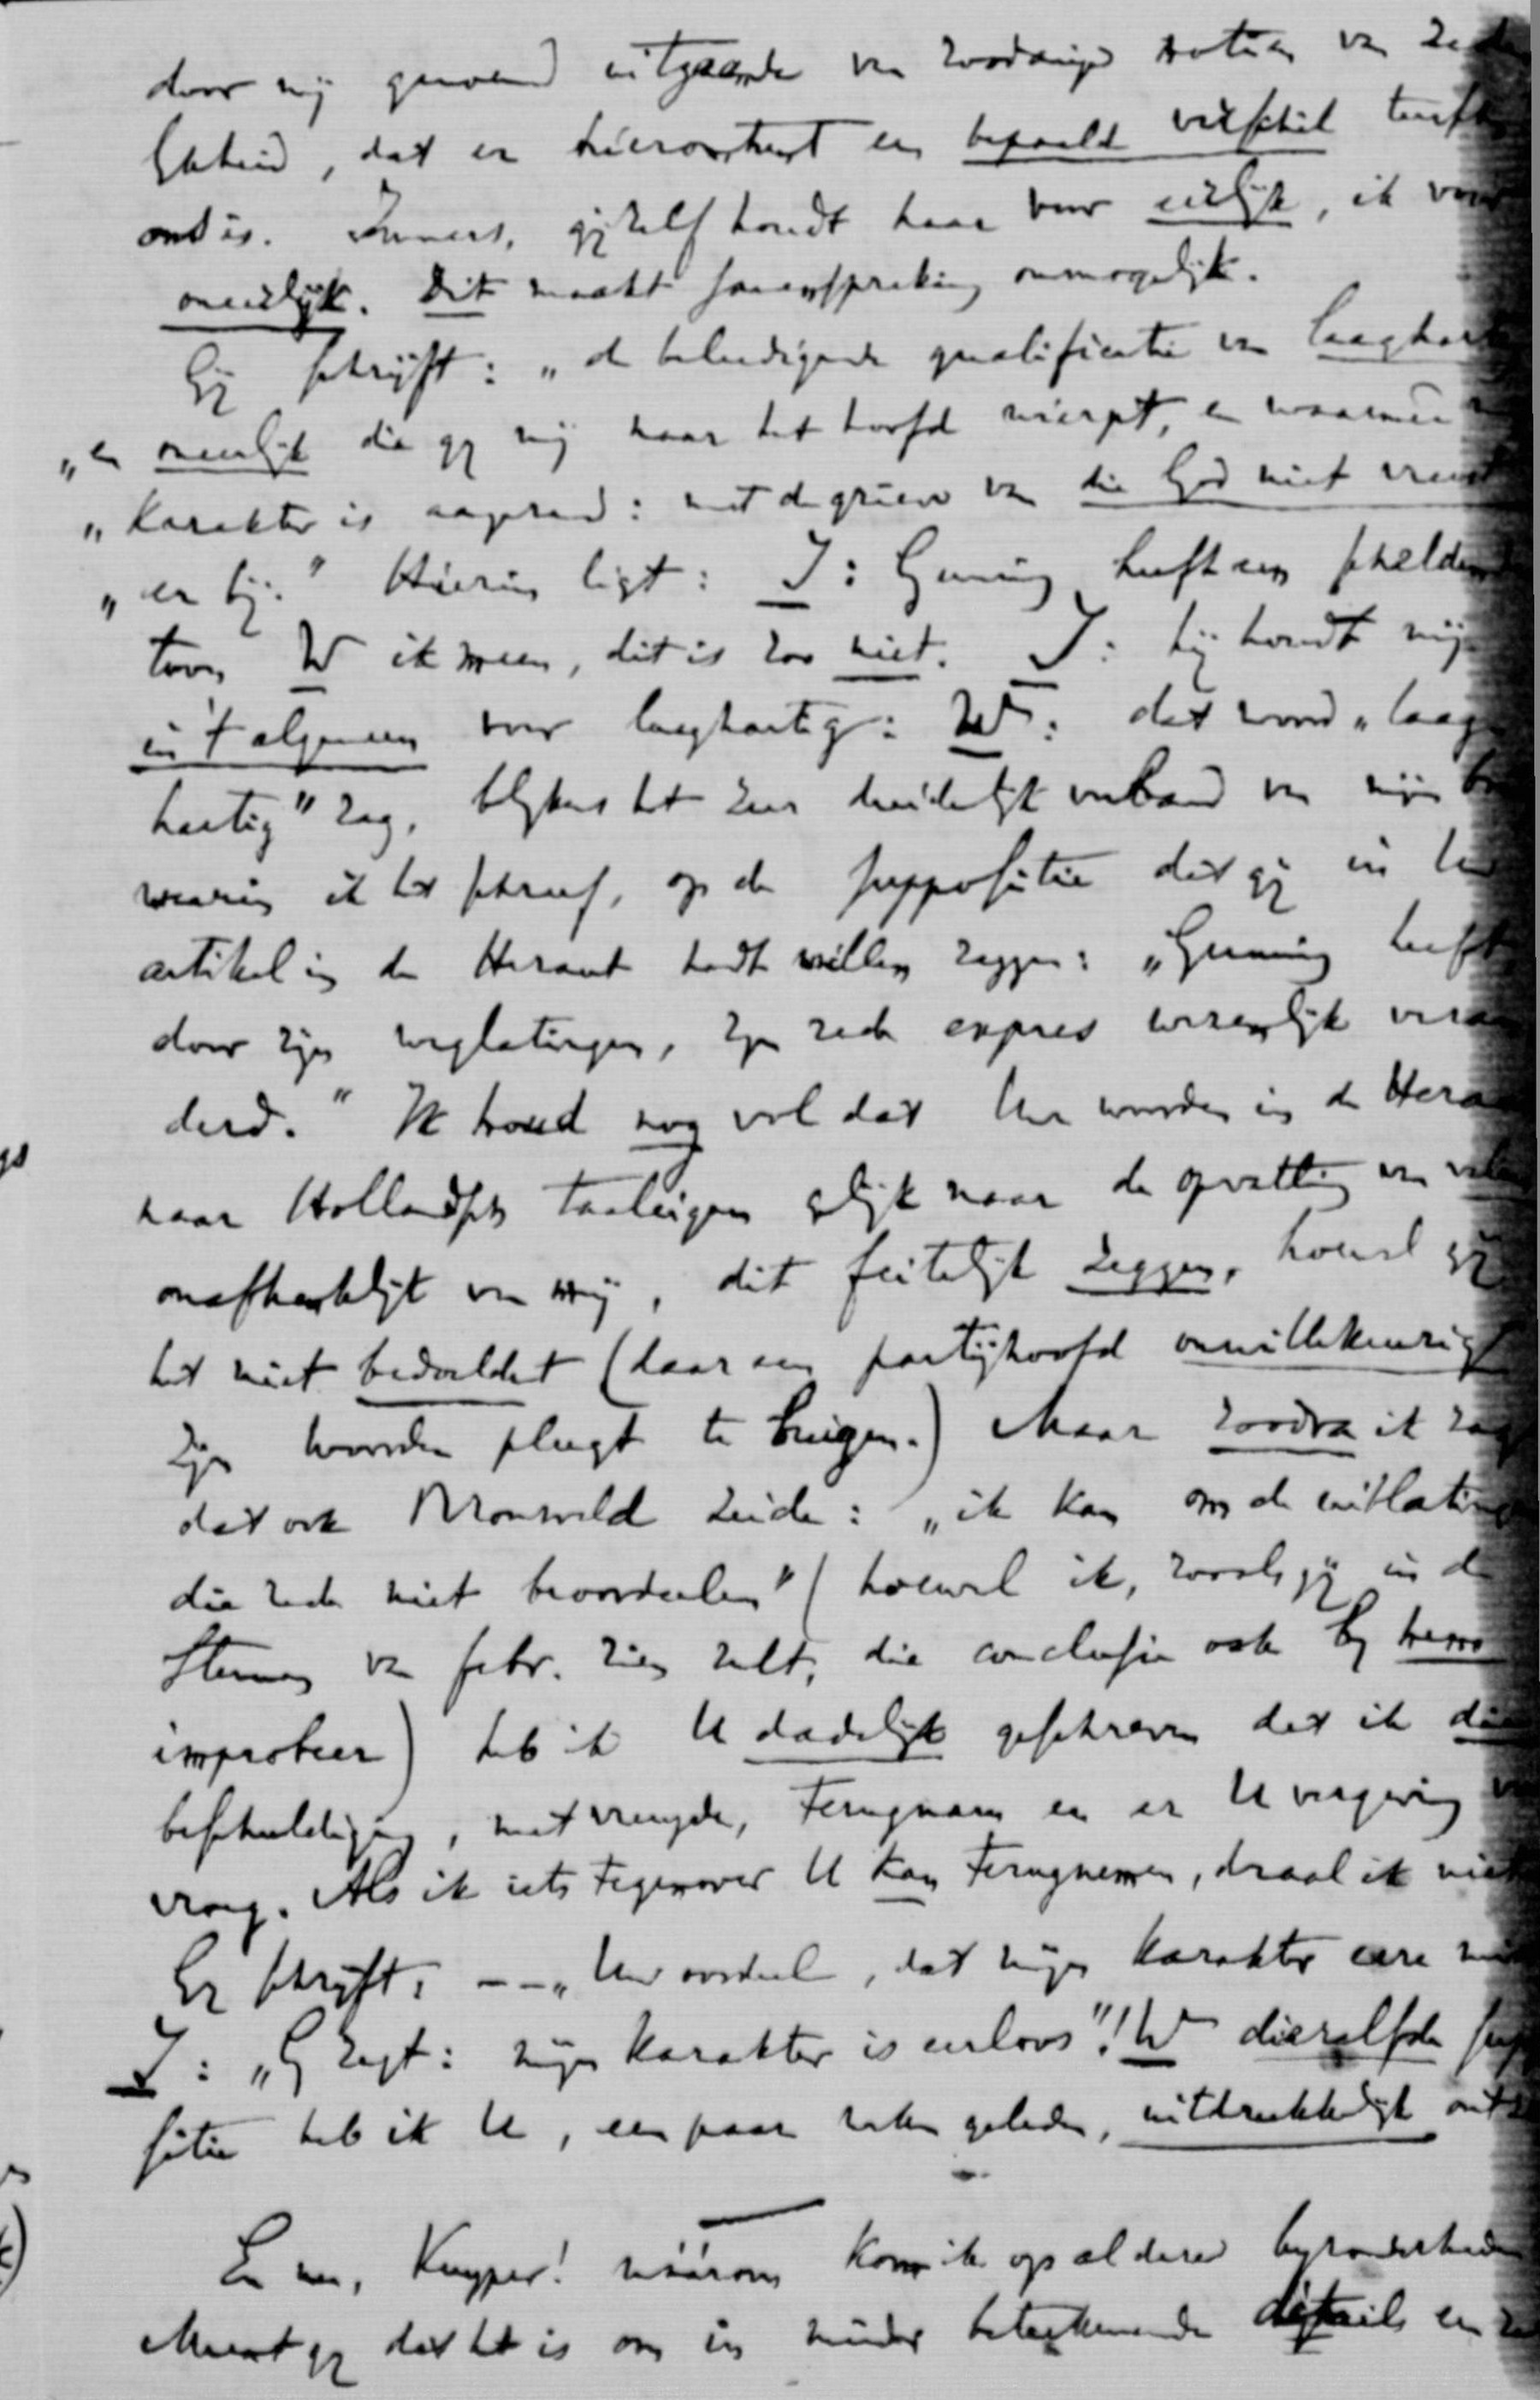 door mij gewoend uitgaande van zoodanige notie van zede
lijkheid, dat er hieromtrent een bepaald verschil tusschen
ons is. Immers, gij zelf houdt haar voor eerlijk, ik voor
oneerlijk. Dit maakt samenspreking onmogelijk.
Gij schrijft: „de beleedigende qualificatie van laaghartig
„en oneerlijk die gij mij naar het hoofd wierpt, en waarmee
„karakter is aangerand: met de grieve van die God niet vreest
„er bij." Hierin ligt: I: Gunning heeft een scheldend
toon W ik meen, dit is zoo niet. I: hij houdt mij
in 't algemeen voor laaghartig: W: dat woord „laag
hartig" zag, blijkens het zeer duidelijk verband van mijn br
waarin ik het schreef, op de suppositie dat gij in Uw
artikel in de Heraut hadt willen zeggen: „Gunning heeft
door zijn weglatingen, zijn rede expres wezenlijk veran
derd." Ik houd nog vol dat Uw woorden in de Heraut
naar Hollandsch taaleigen gelijk naar de opvatting van velen
onafhankelijk van mij, dit feitelijk zeggen, hoewel gij
het niet bedoeldet (daar een partijhoofd onwillekeurig
zijn woorden pleegt te buigen.) Maar zoodra ik zag
dat ook Bronsveld zeide: „ik kan om de uitlatingen
die rede niet beoordeelen" (hoewel ik, zooals gij in de
Stemmen van febr. zien zult, die conclusie ook bij hem
improbeer) heb ik U dadelijk geschreven dat ik die
beschuldiging, met vreugde, terugnam en er U vergeving v
vroeg. Als ik iets tegenover U kan terugnemen, draal ik niet
Gij schrijft: - - „Uw oordeel, dat mijn karakter eere mi
I: „G zegt: mijn karakter is eerloos"! W diezelfde sup
positie heb ik U, een paar weken geleden, uitdrukkelijk ont
En nu, Kuyper! wáárom kom ik op al deze bijzonderheden
Meent gij dat het is om in minder beteekenende details een